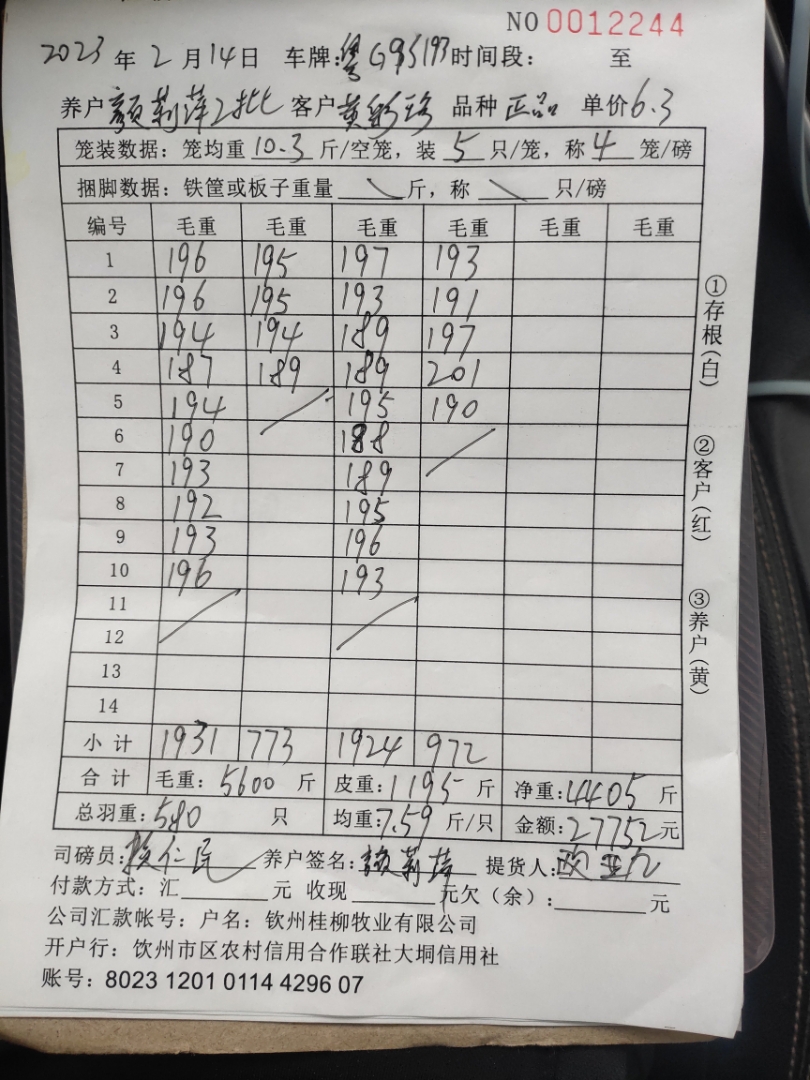 NO 0012244
2023 年 2 月 14 日 车牌: 粤G95193 时间段: 至
养户 颜莉萍2批 客户 黄彩 品种 正品 单价 6.3
笼装数据: 笼均重 10.3 斤/空笼, 装 5 只/笼, 称 4 笼/磅
捆脚数据: 铁筐或板子重量 \ 斤, 称 \ 只/磅
编号 毛重 毛重 毛重 毛重 毛重 毛重
1 196 195 197 193
2 196 195 193 191
3 194 194 189 197
4 187 189 189 201
5 194 195 190
6 190 188
7 193 189
8 192 195
9 193 196
10 196 193
11
12
13
14
小计 1931 773 1924 972
合计 毛重: 5600 斤 皮重: 1195 斤 净重: 4405 斤
总羽重: 580 只 均重: 7.59 斤/只 金额: 27752 元
司磅员: 赖仁民 养户签名: 颜莉萍 提货人: 欧亚九
付款方式: 汇 元 收现 元欠(余): 元
公司汇款帐号: 户名: 钦州桂柳牧业有限公司
开户行: 饮州市区农村信用合作联社大垌信用社
账号: 8023 1201 0114 4296 07
①存根(白)
②客户(红)
③养户(黄)